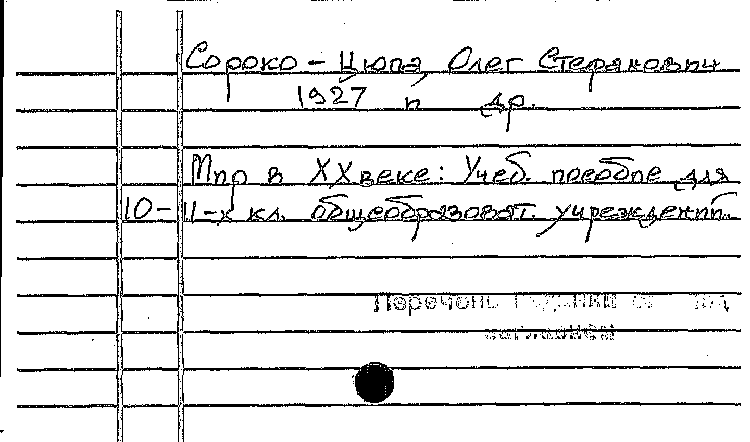 Сороко-Цюпа, Олег Стефанович
1927 и др.
Мир в XX веке: Учеб. пособие для
10-11-х кл. общеобразоват. учреждений.
Перечень